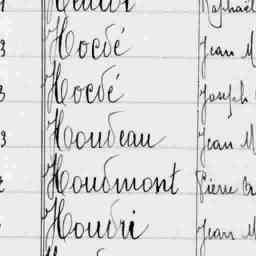 Raphaël
3 Hocdé Jean M
3 Hocdé Joseph
3 Houdeau Jean M
Houdmont Pierre
Houdri Jean M